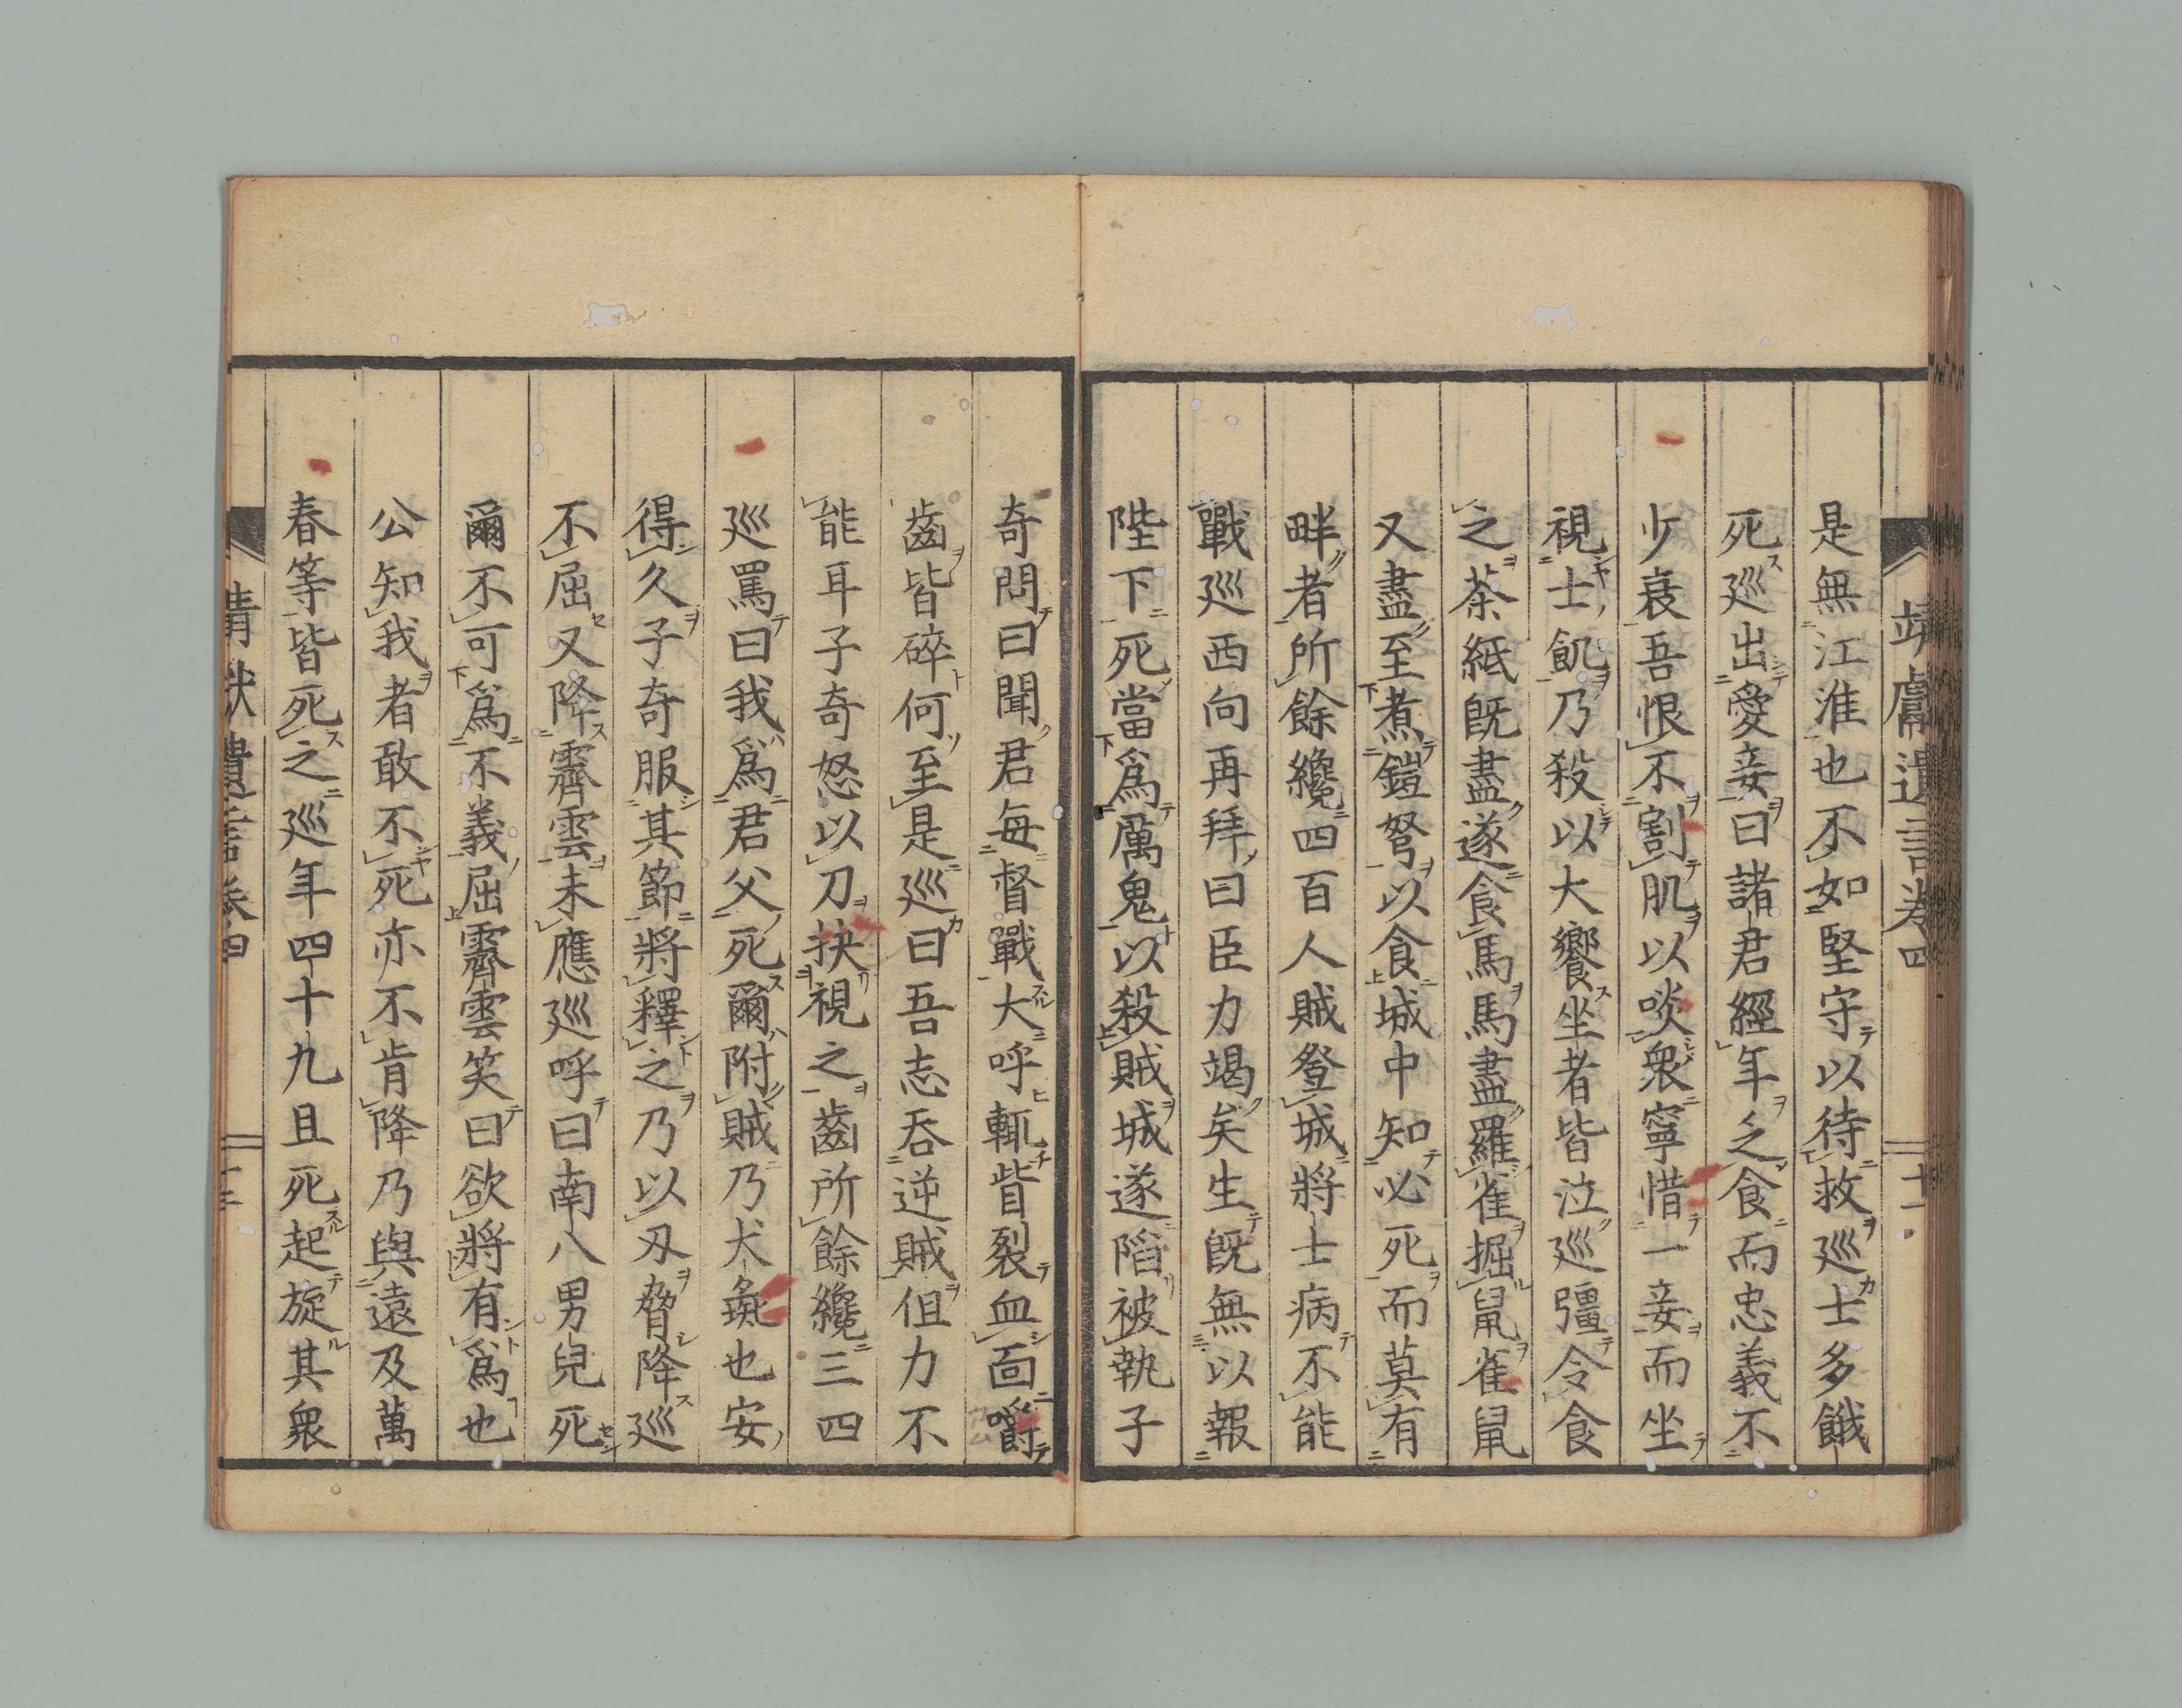 靖獻遺言卷四
十一
是無江淮也不如堅守以待救巡士多餓
死巡出愛妾曰諸君經年乏食而忠義不
少衰吾恨不割肌以啖衆寧惜一妾而坐
視士飢乃殺以大饗坐者皆泣巡彊令食
之茶紙既盡遂食馬馬盡羅雀掘鼠雀鼠
又盡至煮鎧弩以食城中知必死而莫有
畔者所餘纔四百人賊登城將士病不能
戰巡西向再拜曰臣力竭矣生既無以報
陛下死當爲厲鬼以殺賊城遂陷被執子
奇問曰聞君每督戰大呼輒眥裂血面嚼
齒皆碎何至是巡曰吾志吞逆賊但力不
能耳子奇怒以刀抉視之齒所餘纔三四
巡罵曰我爲君父死爾附賊乃犬彘也安
得久子奇服其節將釋之乃以刃脅降巡
不屈又降霽雲未應巡呼曰南八男兒死
爾不可爲不義屈霽雲笑曰欲將有爲也
公知我者敢不死亦不肯降乃與遠及萬
春等皆死之巡年四十九且死起旋其衆
靖獻遺言卷四